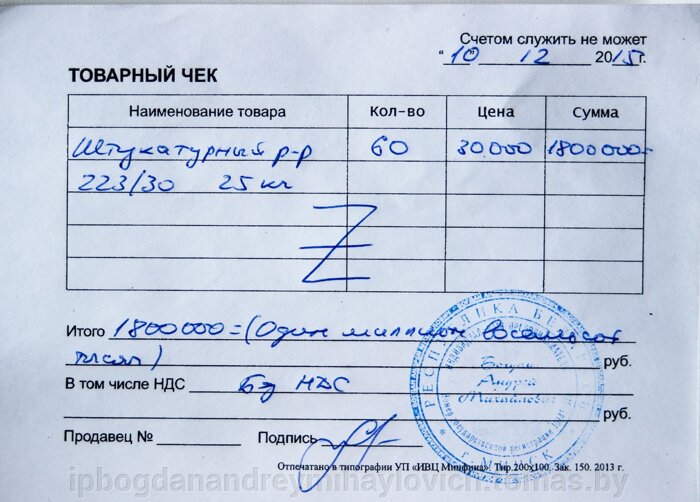 Счетом служить не может
"10" 12 2015г.
ТОВАРНЫЙ ЧЕК
Наименование товара Кол-во Цена Сумма
Штукатурный р-р 60 30.000 1800000=
223/30 25 кг
Итого 1800000=(Один миллион восемьсот
тысяч) руб.
В том числе НДС Без НДС
руб.
Продавец № Подпись
Отпечатано в типографии УП «ИВЦ Минфина». Тир.200х100. Зак. 150. 2013 г.
РЕСПУБЛИКА БЕЛАРУСЬ
Андрей
Михайлович
г. МИНСК
ipbogdanandreymihaylovich.tomas.by